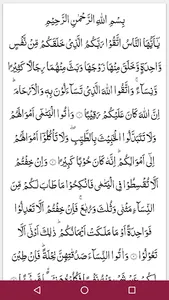 بِسْمِ اللَّهِ الرَّحْمَٰنِ الرَّحِيمِ
يَا أَيُّهَا النَّاسُ اتَّقُوا رَبَّكُمُ الَّذِي خَلَقَكُمْ مِنْ نَفْسٍ
وَاحِدَةٍ وَخَلَقَ مِنْهَا زَوْجَهَا وَبَثَّ مِنْهُمَا رِجَالًا كَثِيرًا
وَنِسَاءً ۚ وَاتَّقُوا اللَّهَ الَّذِي تَسَاءَلُونَ بِهِ وَالْأَرْحَامَ ۚ
إِنَّ اللَّهَ كَانَ عَلَيْكُمْ رَقِيبًا ۝ وَآتُوا الْيَتَامَىٰ أَمْوَالَهُمْ
وَلَا تَتَبَدَّلُوا الْخَبِيثَ بِالطَّيِّبِ ۖ وَلَا تَأْكُلُوا أَمْوَالَهُمْ
إِلَىٰ أَمْوَالِكُمْ ۚ إِنَّهُ كَانَ حُوبًا كَبِيرًا ۝ وَإِنْ خِفْتُمْ
أَلَّا تُقْسِطُوا فِي الْيَتَامَىٰ فَانْكِحُوا مَا طَابَ لَكُمْ مِنَ
النِّسَاءِ مَثْنَىٰ وَثُلَاثَ وَرُبَاعَ ۖ فَإِنْ خِفْتُمْ أَلَّا تَعْدِلُوا
فَوَاحِدَةً أَوْ مَا مَلَكَتْ أَيْمَانُكُمْ ۚ ذَٰلِكَ أَدْنَىٰ أَلَّا
تَعُولُوا ۝ وَآتُوا النِّسَاءَ صَدُقَاتِهِنَّ نِحْلَةً ۚ فَإِنْ طِبْنَ